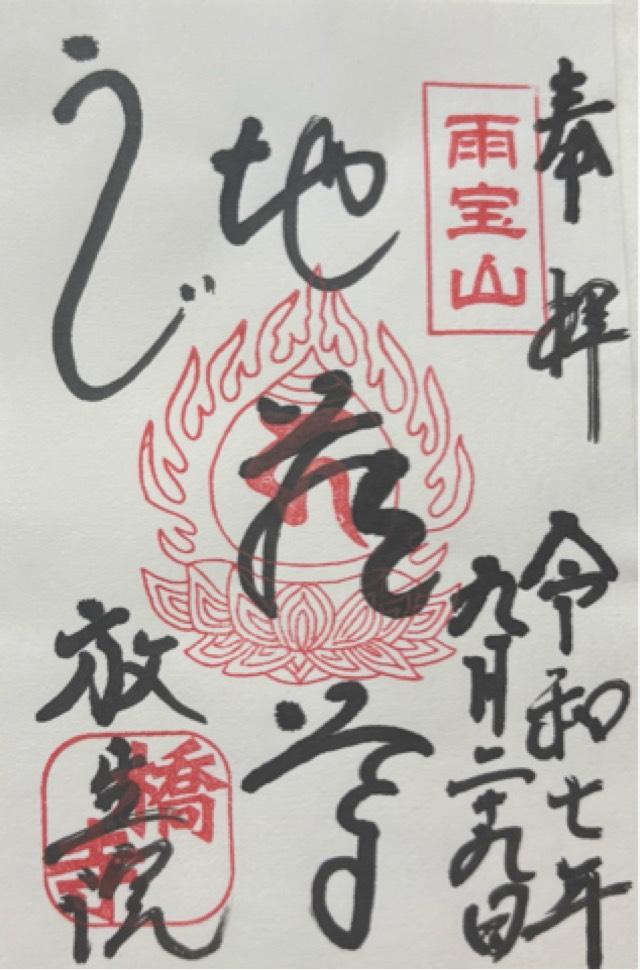 奉拝
令和七年
九月二十九日
雨宝山
地蔵尊
うじ
放生院
橋寺